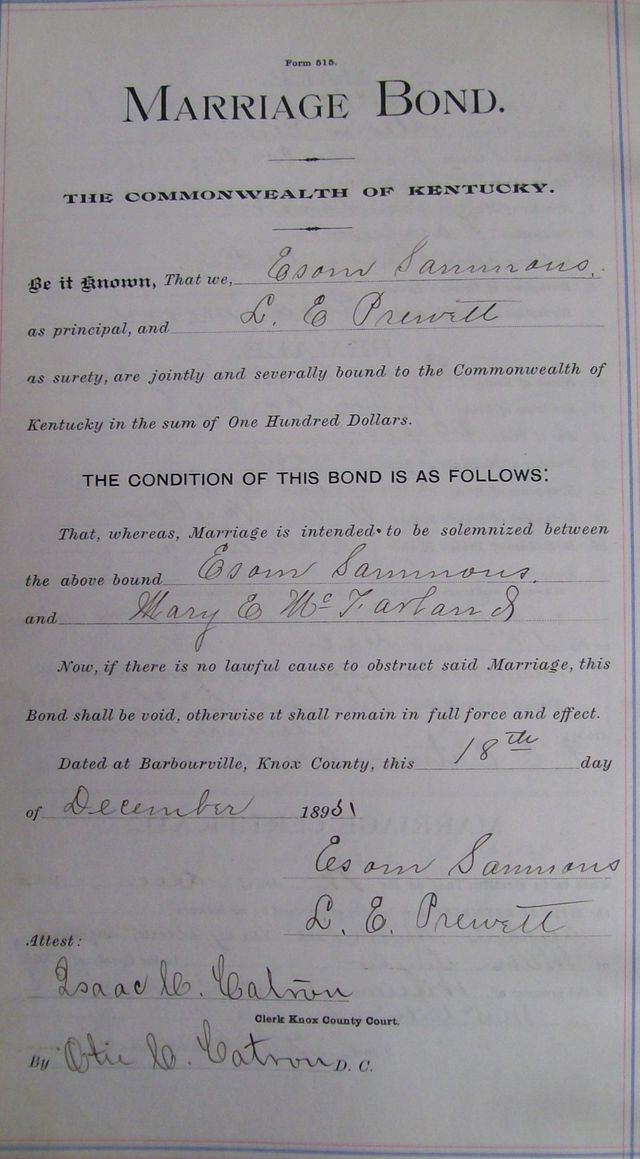 Form 515.
MARRIAGE BOND.
THE COMMONWEALTH OF KENTUCKY.
Be it Known, That we, Esom Sammons,
as principal, and L. E Prewett
as surety, are jointly and severally bound to the Commonwealth of
Kentucky in the sum of One Hundred Dollars.
THE CONDITION OF THIS BOND IS AS FOLLOWS:
That, whereas, Marriage is intended to be solemnized between
the above bound Esom Sammons.
and Mary E Mc Farland
Now, if there is no lawful cause to obstruct said Marriage, this
Bond shall be void, otherwise it shall remain in full force and effect.
Dated at Barbourville, Knox County, this 18th day
of December 189
Esom Sammons
L. E. Prewett
Attest:
Isaac C. Catron
Clerk Knox County Court.
By C. Catron D. C.